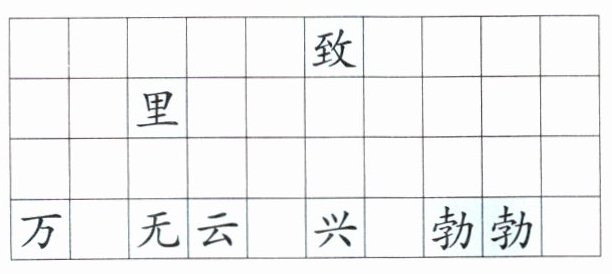 致
里
万 无云 兴 勃勃